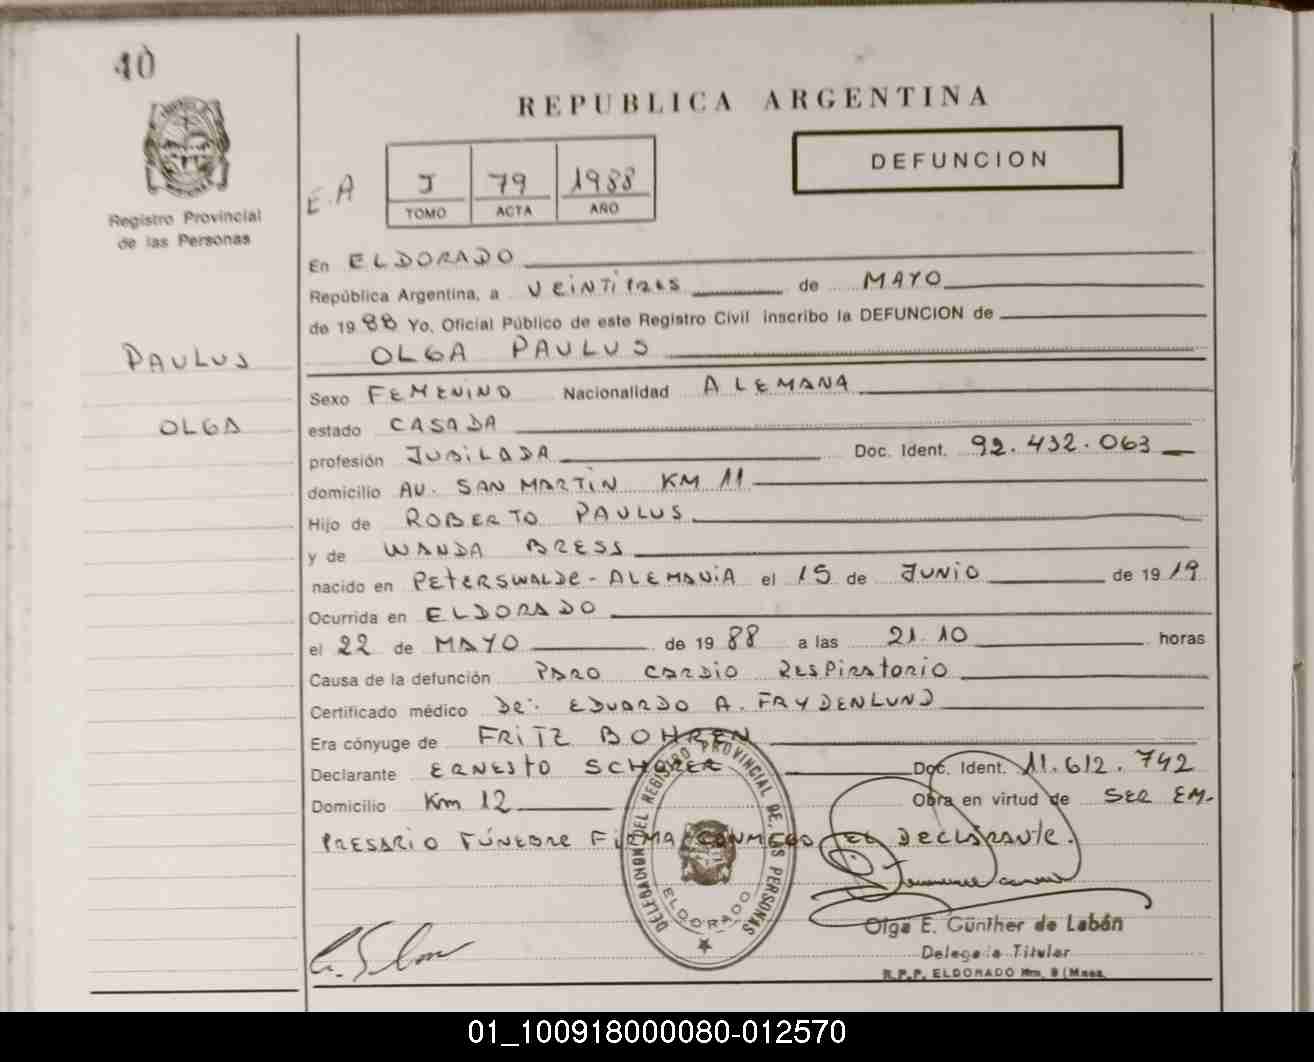 40
REPUBLICA ARGENTINA
DEFUNCION
Registro Provincial
de las Personas
E.A
J 79 1988
TOMO ACTA AÑO
En ELDORADO
República Argentina, a VEINTITRES de MAYO
de 1988 Yo, Oficial Público de este Registro Civil inscribo la DEFUNCION de
PAULUS
OLGA
OLGA PAULUS
Sexo FEMENINO Nacionalidad ALEMANA
estado CASADA
profesión JUBILADA Doc. Ident. 92.432.063
domicilio AV. SAN MARTIN KM 11
Hijo de ROBERTO PAULUS
y de WANDA BRESS
nacido en PETERSWALDE-ALEMANIA el 15 de JUNIO de 1919
Ocurrida en ELDORADO
el 22 de MAYO de 1988 a las 21.10 horas
Causa de la defunción PARO CARDIO RESPIRATORIO
Certificado médico DR: EDUARDO A. FRYDENLUND
Era cónyuge de FRITZ BOHREN
Declarante ERNESTO SCHORER Doc. Ident. 11.612.742
Domicilio Km 12 Obra en virtud de SER EM-
PRESARIO FÚNEBRE FIRMA CONMEGO EL DECLARANTE.
DELEGACION DEL REGISTRO PROVINCIAL DE LAS PERSONAS
ELDORADO
Olga E. Günther de Labán
Delegada Titular
R.P.P. ELDORADO Km. 9 (Mnes.
01_100918000080-012570